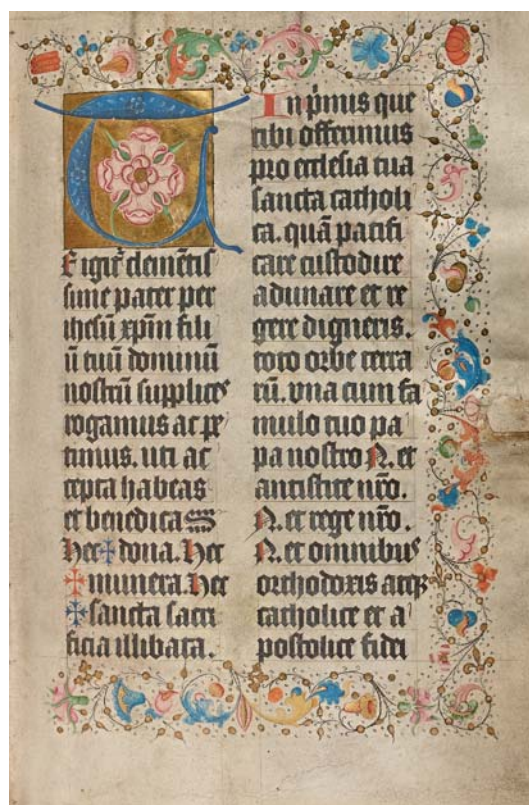 T
E igit᷑ clemẽtis
sime pater per
ihesũ xp̃m fili
ũ tuũ dominũ
nostrũ supplices
rogamus ac pe
timus. uti ac
cepta habeas
et benedicas
hec ✠ dona. hec
✠ munera. hec
✠ sancta sacri
ficia illibata.
In p̃mis que
tibi offerimus
pro ecclesia tua
sancta catholi
ca. quã pacifi
care custodire
adunare et re
gere digneris.
toto orbe terra
rũ. vna cum fa
mulo tuo pa
pa nostro N. et
antistite nr̃o.
N. et rege nr̃o.
N. et omnibus
orthodoxis atqꝫ
catholice et a
postolice fidei